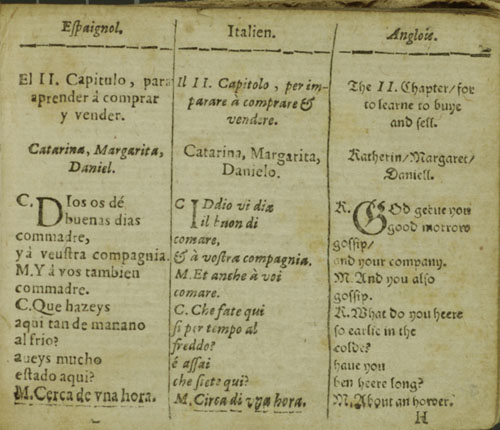 Espaignol.
El II. Capitulo, para
aprender à comprar
y vender.
Catarina, Margarita,
Daniel.
C. DIos os dé
buenas dias
commadre,
y á veustra compagnia.
M. Y á vos tambien
commadre.
C. Que hazeys
aqui tan de manano
al frio?
aueys mucho
estado aqui?
M. Cerca de vna hora.
Italien.
Il II. Capitolo, per im-
parare à comprare &
vendere.
Catarina, Margarita,
Danielo.
C IDdio vi dia
il buon di
comare,
& à vostra compagnia.
M. Et anche à voi
comare.
C. Che fate qui
si per tempo al
freddo?
è assai
che siete qui?
M. Circa di vna hora.
Anglois.
The II. Chapter/for
to learne to buye
and sell.
Katherin/Margaret/
Daniell.
K. GOd geeue you
good morrow
gossip/
and your company.
M. And you also
gossip.
K. What do you heere
so earlie in the
colde?
haue you
ben heere long?
M. About an hower.
H